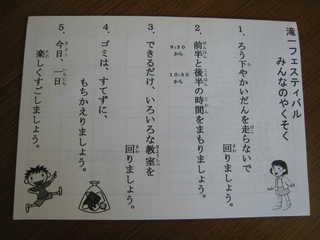 滝一フェスティバル
みんなのやくそく
1．ろう下やかいだんを走らないで
回りましょう。
2．前半と後半の時間をまもりましょう。
9:30から
10:40から
3．できるだけ、いろいろな教室を
回りましょう。
4．ゴミは、すてずに、
もちかえりましょう。
5．今日、一日
楽しくすごしましょう。